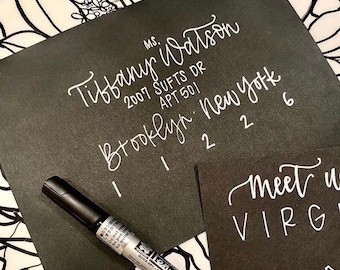 MS.
Tiffany Watson
2007 SUFTS DR
APT 501
Brooklyn New York
1 1 2 2 6
meet u
VIRG